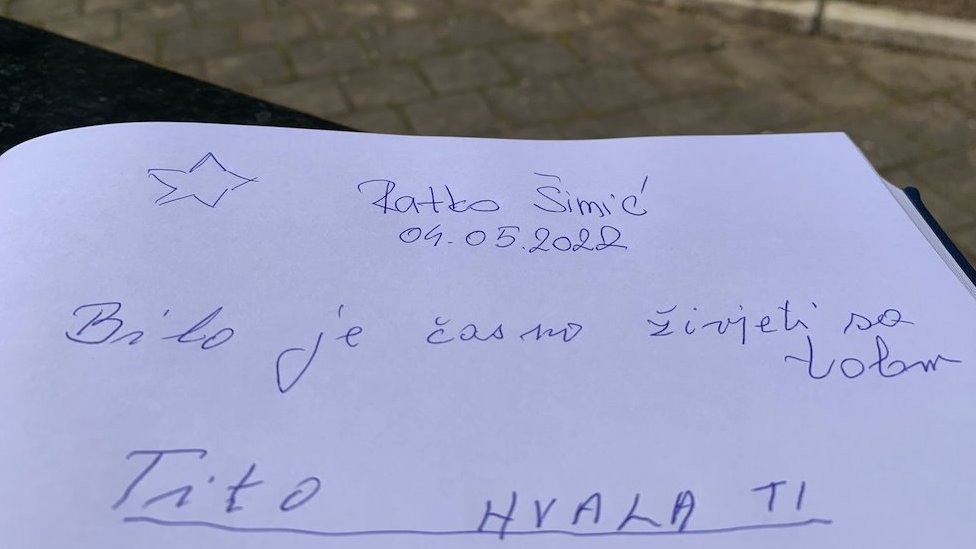 Ratko Šimić
04.05.2022
Bilo je časno živjeti sa
tobom
Tito HVALA TI